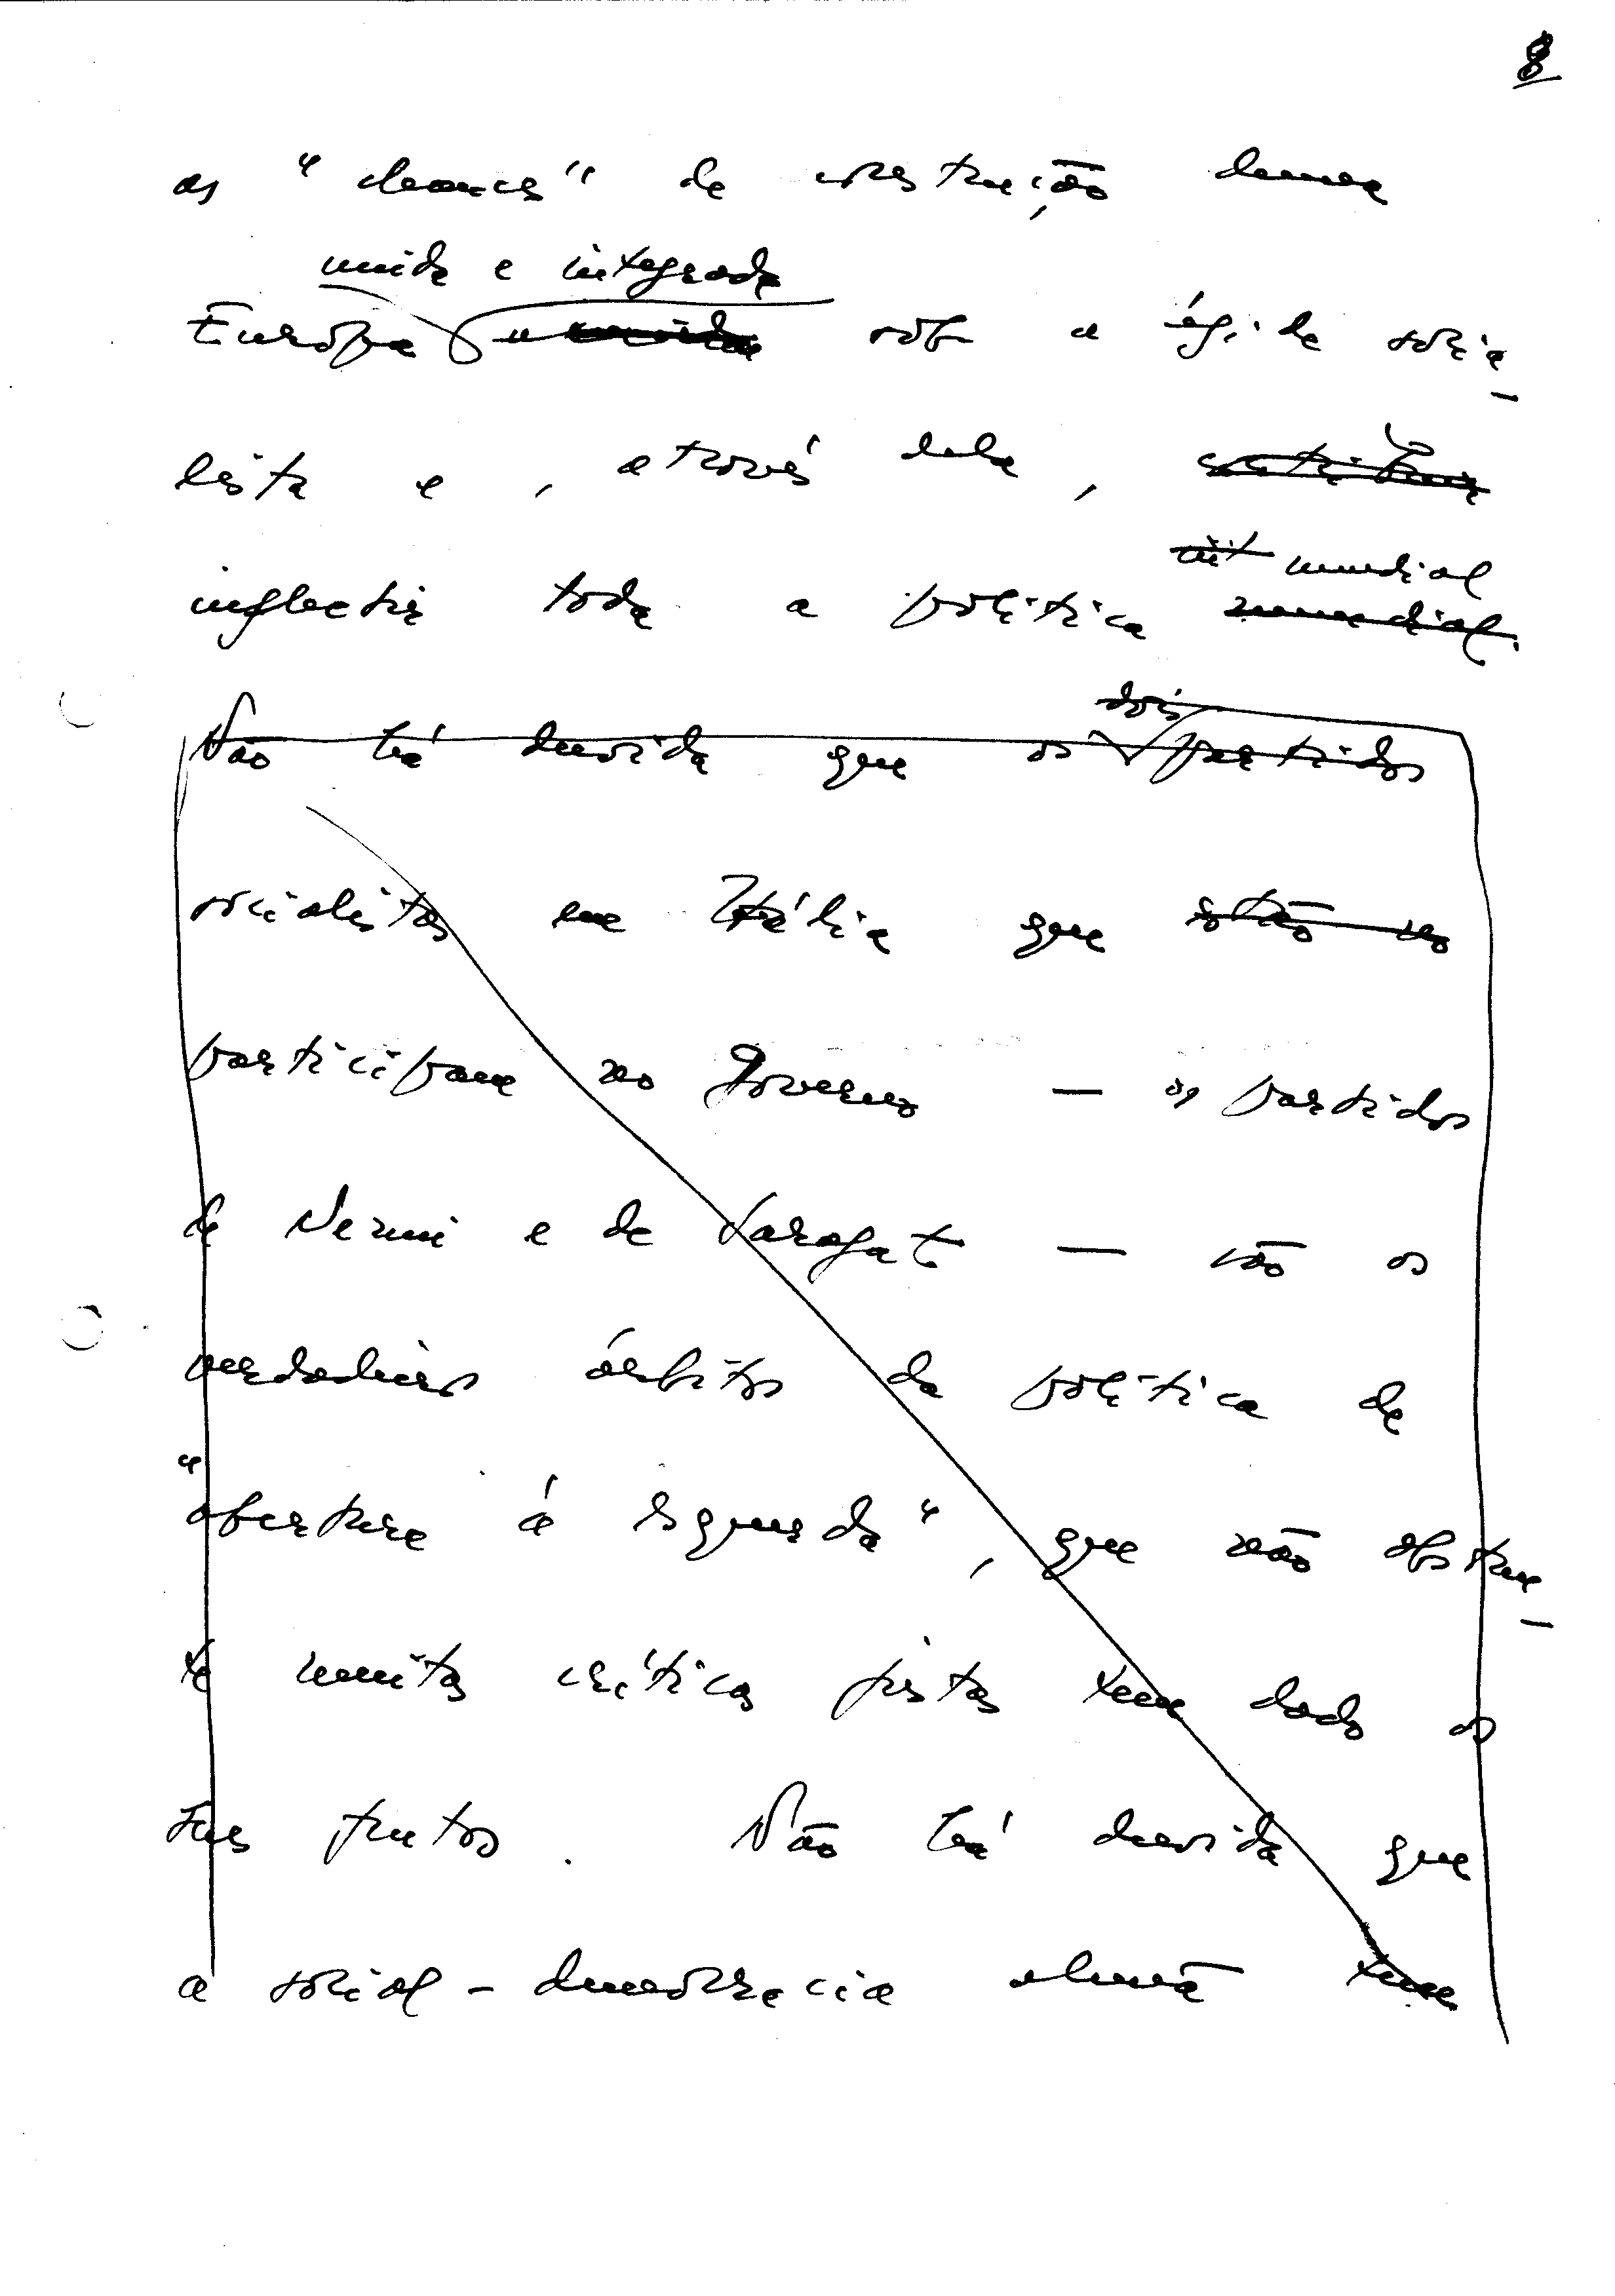 8
as "chances" de construção duma
unida e integrada
Europa unida sob a égide socia-
lista e, através dela,
int mundial
inflectir toda a política mundial.
dois
Não há duvida que os partidos
socialistas em Itália que estão no
participam no Governo — os partidos
de Nenni e de Saragat — são os
verdadeiros árbitros da política de
"abertura á esquerda", que não obstan-
te muitas críticas justas tem dado os
seus frutos. Não há duvida que
a social-democracia alemã tem